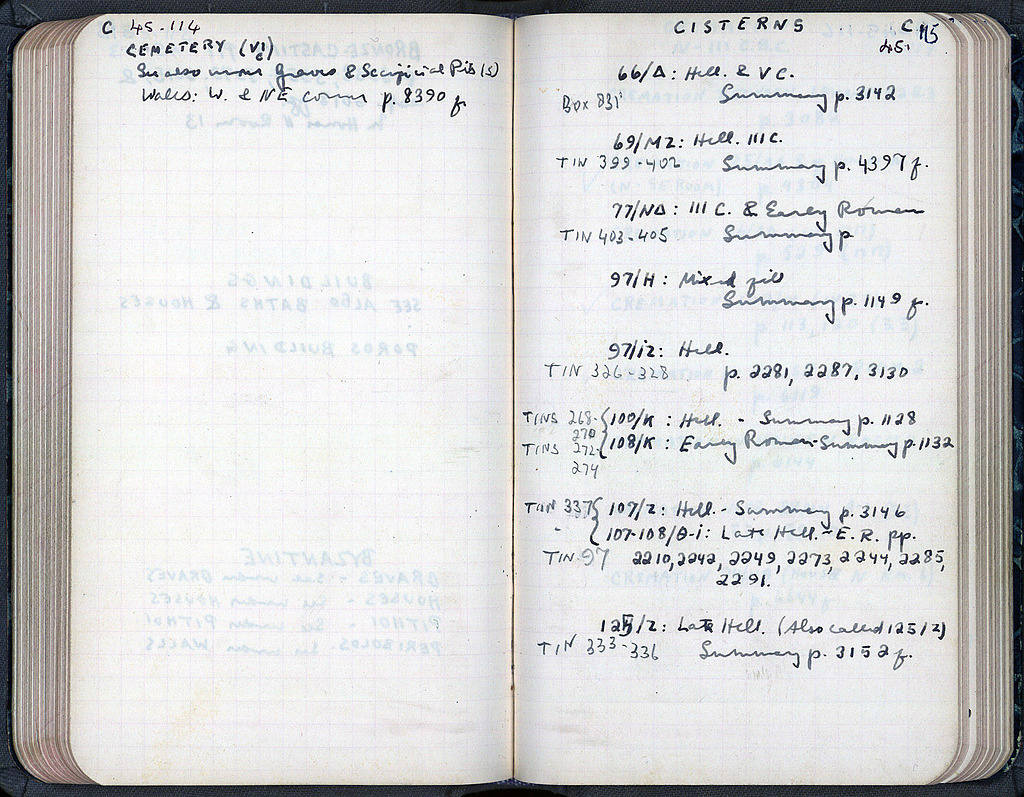 C 45-114
CEMETERY (VC)
See also under Graves & Sacrificial Pits (s)
Walls: W. & NE corner p. 8390 f
CISTERNS
C
45. 115
66/Δ: Hell. & VC.
Box 831 Summary p. 3142
69/MZ: Hell. IIIC.
TIN 399-402 Summary p. 4397 f.
77/NΔ: III C. & Early Roman
TIN 403-405 Summary p
97/H: Mixed fill
Summary p. 1149 f.
97/iz: Hell.
TIN 326-328 p. 2281, 2287, 3130
TINS 268-270 100/K: Hell. - Summary p. 1128
TINS 272-274 108/K: Early Roman-Summary p. 1132
TIN 337 107/Z: Hell. - Summary p. 3146
107-108/Θ-i: Late Hell.-E.R. pp.
TIN 97 2210, 2242, 2249, 2273, 2244, 2285,
2291.
125/Z: Late Hell. (Also called 125/Z)
TIN 333-336 Summary p. 3152 f.